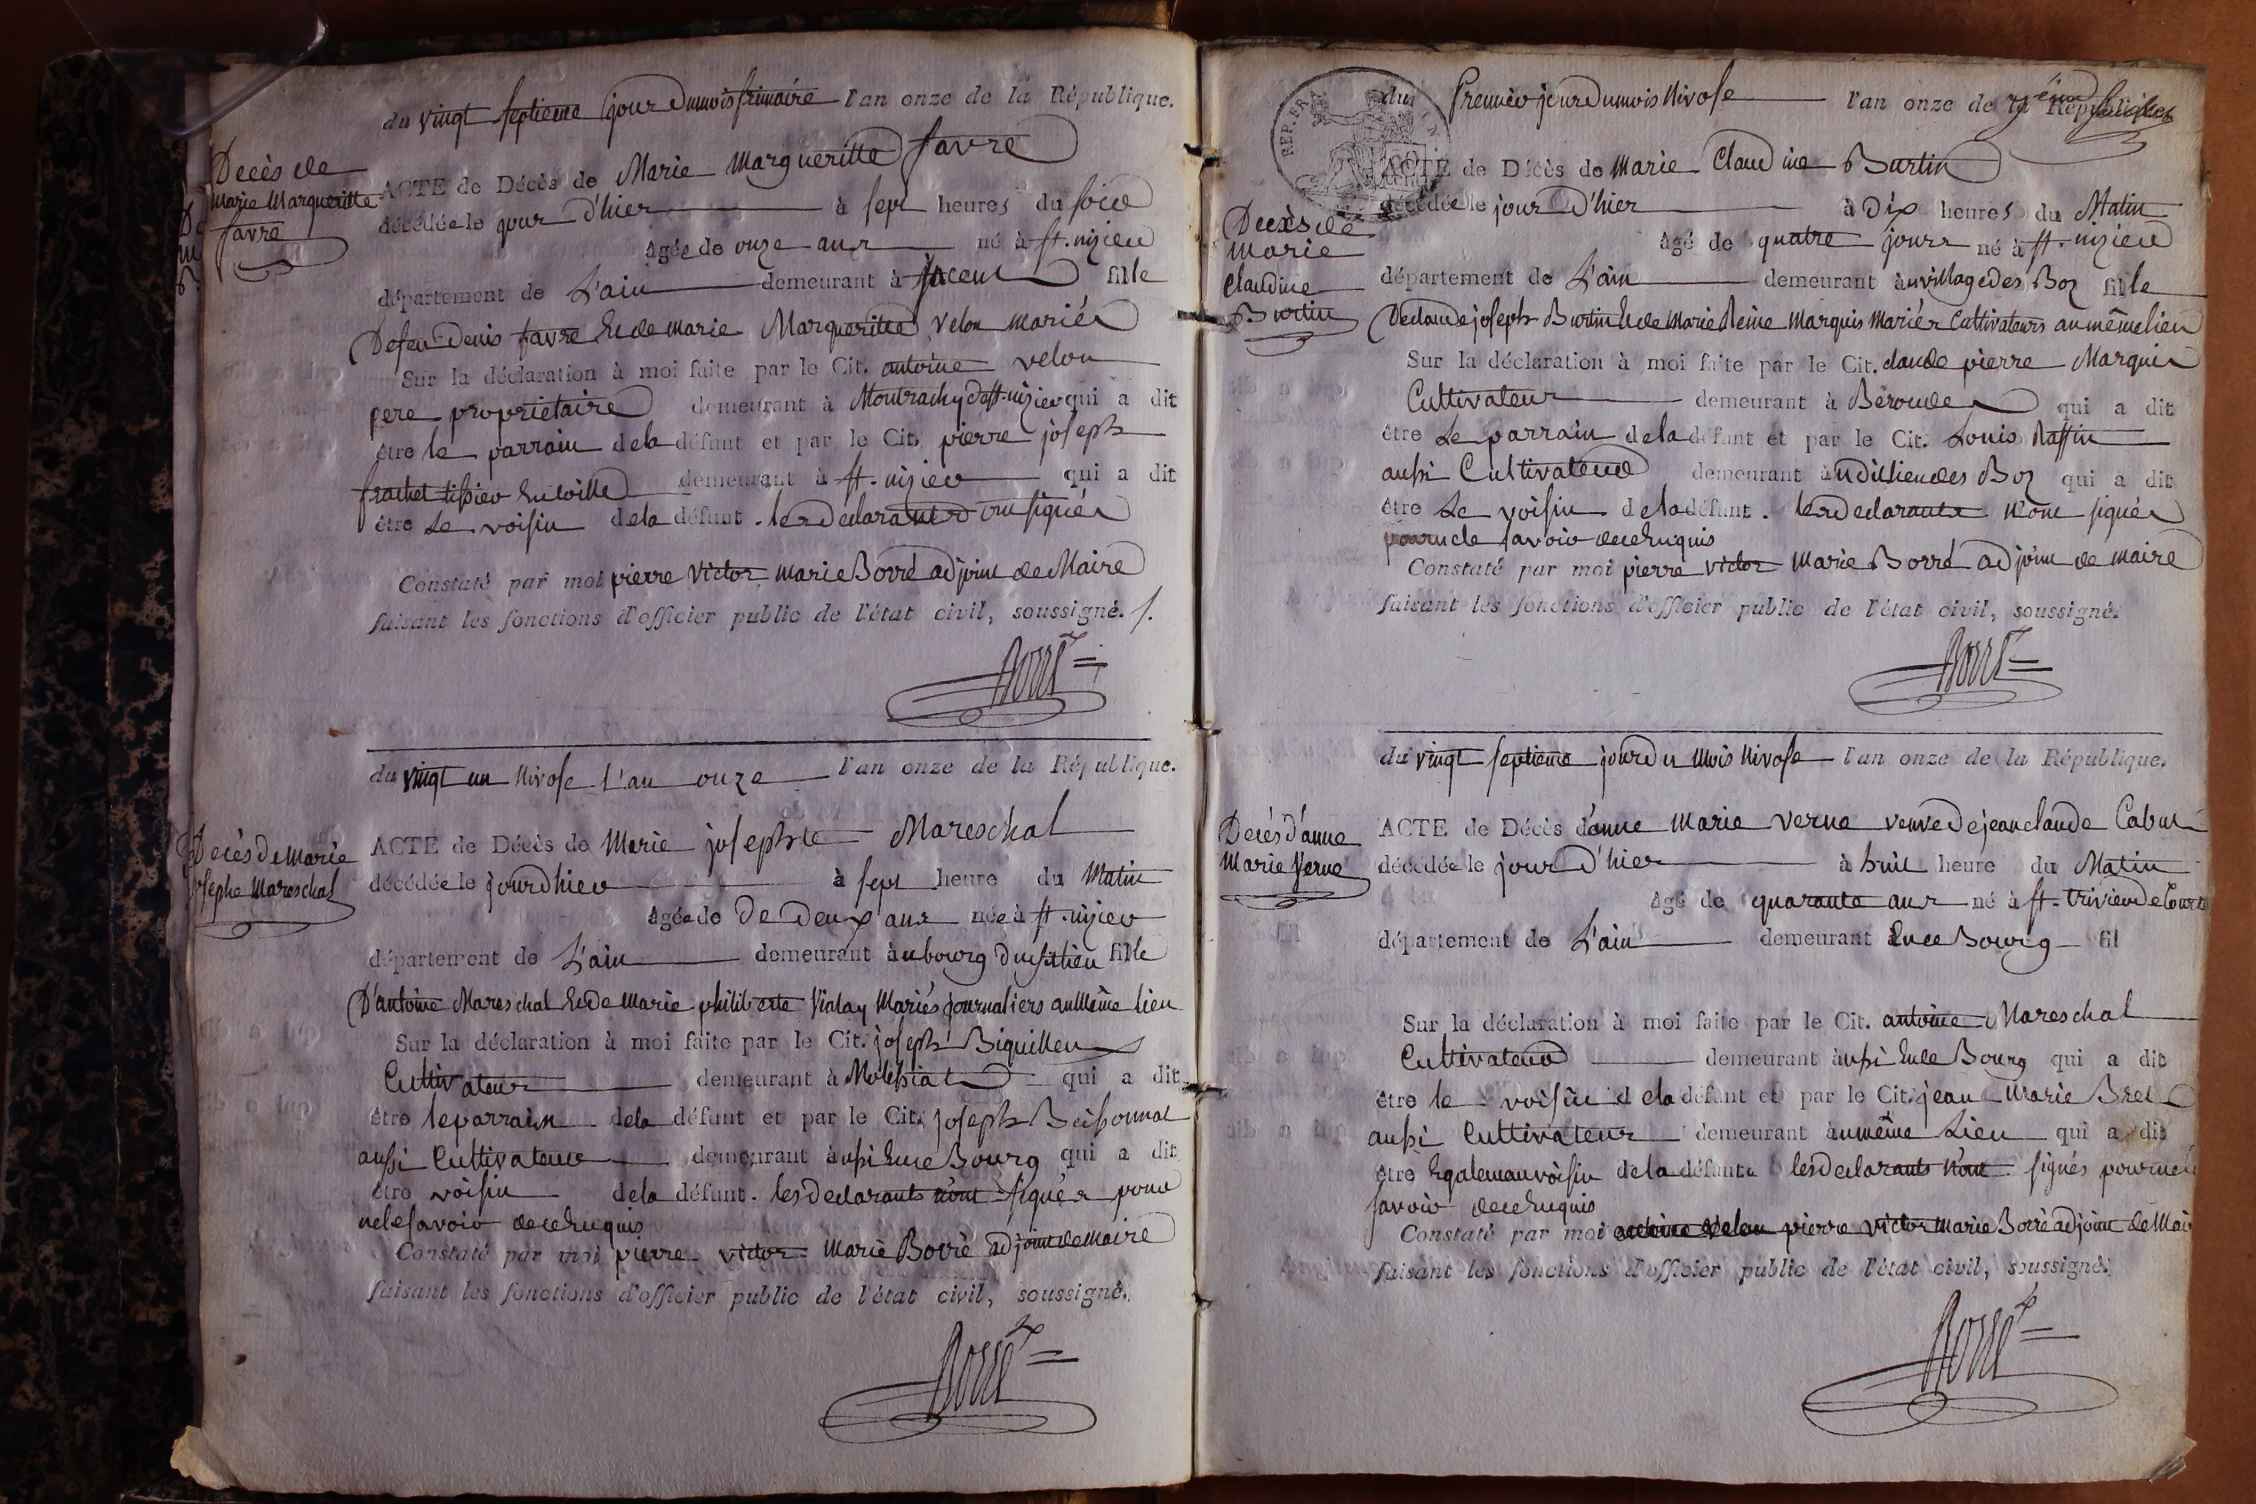 du vingt septieme jour du mois frimaire l'an onze de la République.
Decès de
Marie Margueritte
favre
ACTE de Décès de Marie Margueritte favre
décédée le jour d'hier à sept heures du soir
âgée de onze ans né à st. nizier
département de L'ain demeurant à fille
De feu Denis favre et de marie Margueritte velon mariés
Sur la déclaration à moi faite par le Cit. antoine velon
pere proprietaire demeurant à Montrachy d. st. nizier qui a dit
être le parrain de la défunt et par le Cit. pierre joseph
frachet tissier en toille demeurant à st. nizier qui a dit
être Le voisin de la défunt. les declarants ont signés
Constaté par moi pierre victor marie Borré adjoint de Maire
faisant les fonctions d'officier public de l'état civil, soussigné.
Borré
du vingt un Nivose L'an onze l'an onze de la République.
Decès de marie
josephe Mareschal
ACTE de Décès de Marie josephte Mareschal
décédée le jour d'hier à sept heure du Matin
âgée de De deux ans née à st. nizier
département de L'ain demeurant au bourg dudit lieu fille
D'antoine Mareschal et de marie philiberte Vialay Mariés journaliers au Même lieu
Sur la déclaration à moi faite par le Cit. joseph
Cultivateur demeurant à qui a dit
être le parrain de la défunt et par le Cit. joseph
aussi Cultivateur demeurant aussi en ce Bourg qui a dit
être voisin de la défunt. les declarants n'ont signés pour
ne le savoir de ce enquis
Constaté par moi pierre victor Marie Borré adjoint de Maire
faisant les fonctions d'officier public de l'état civil, soussigné.
Borré
du Premier jour du mois Nivose l'an onze de la République
REP. FRA
Decès de
Marie
Claudine
Burtin
ACTE de Décès de Marie Claudine Burtin
décédée le jour d'hier à Dix heures du Matin
âgé de quatre jours né à st. nizier
département de L'ain demeurant au village des Boz fille
De claude joseph Burtin et de Marie Reine Marquis Mariés Cultivateurs au même lieu
Sur la déclaration à moi faite par le Cit. claude pierre Marquis
Cultivateur demeurant à qui a dit
être Le parrain de la défunt et par le Cit. Louis Raffin
aussi Cultivateur demeurant audit lieu des Boz qui a dit
être Le voisin de la défunt. les declarants n'ont signés
pour ne le savoir de ce enquis
Constaté par moi pierre victor Marie Borré adjoint de maire
faisant les fonctions d'officier public de l'état civil, soussigné.
Borré
du vingt septieme jour du mois Nivose l'an onze de la République.
Decés d'anne
Marie Verne
ACTE de Décès d'anne marie verne veuve de jean claude
décédée le jour d'hier à huit heure du Matin
âgé de quarante ans né à st. trivier de
département de L'ain demeurant En ce Bourg fil
Sur la déclaration à moi faite par le Cit. antoine Mareschal
Cultivateur demeurant aussi En ce Bourg qui a dit
être le voisin de la défunt et par le Cit. jean Marie Bret
aussi Cultivateur demeurant au même Lieu qui a dit
être Egalement voisin de la défunte les declarants n'ont signés pour ne
savoir de ce enquis
Constaté par moi antoine velon pierre victor Marie Borré adjoint de Mai
faisant les fonctions d'officier public de l'état civil, soussigné.
Borré